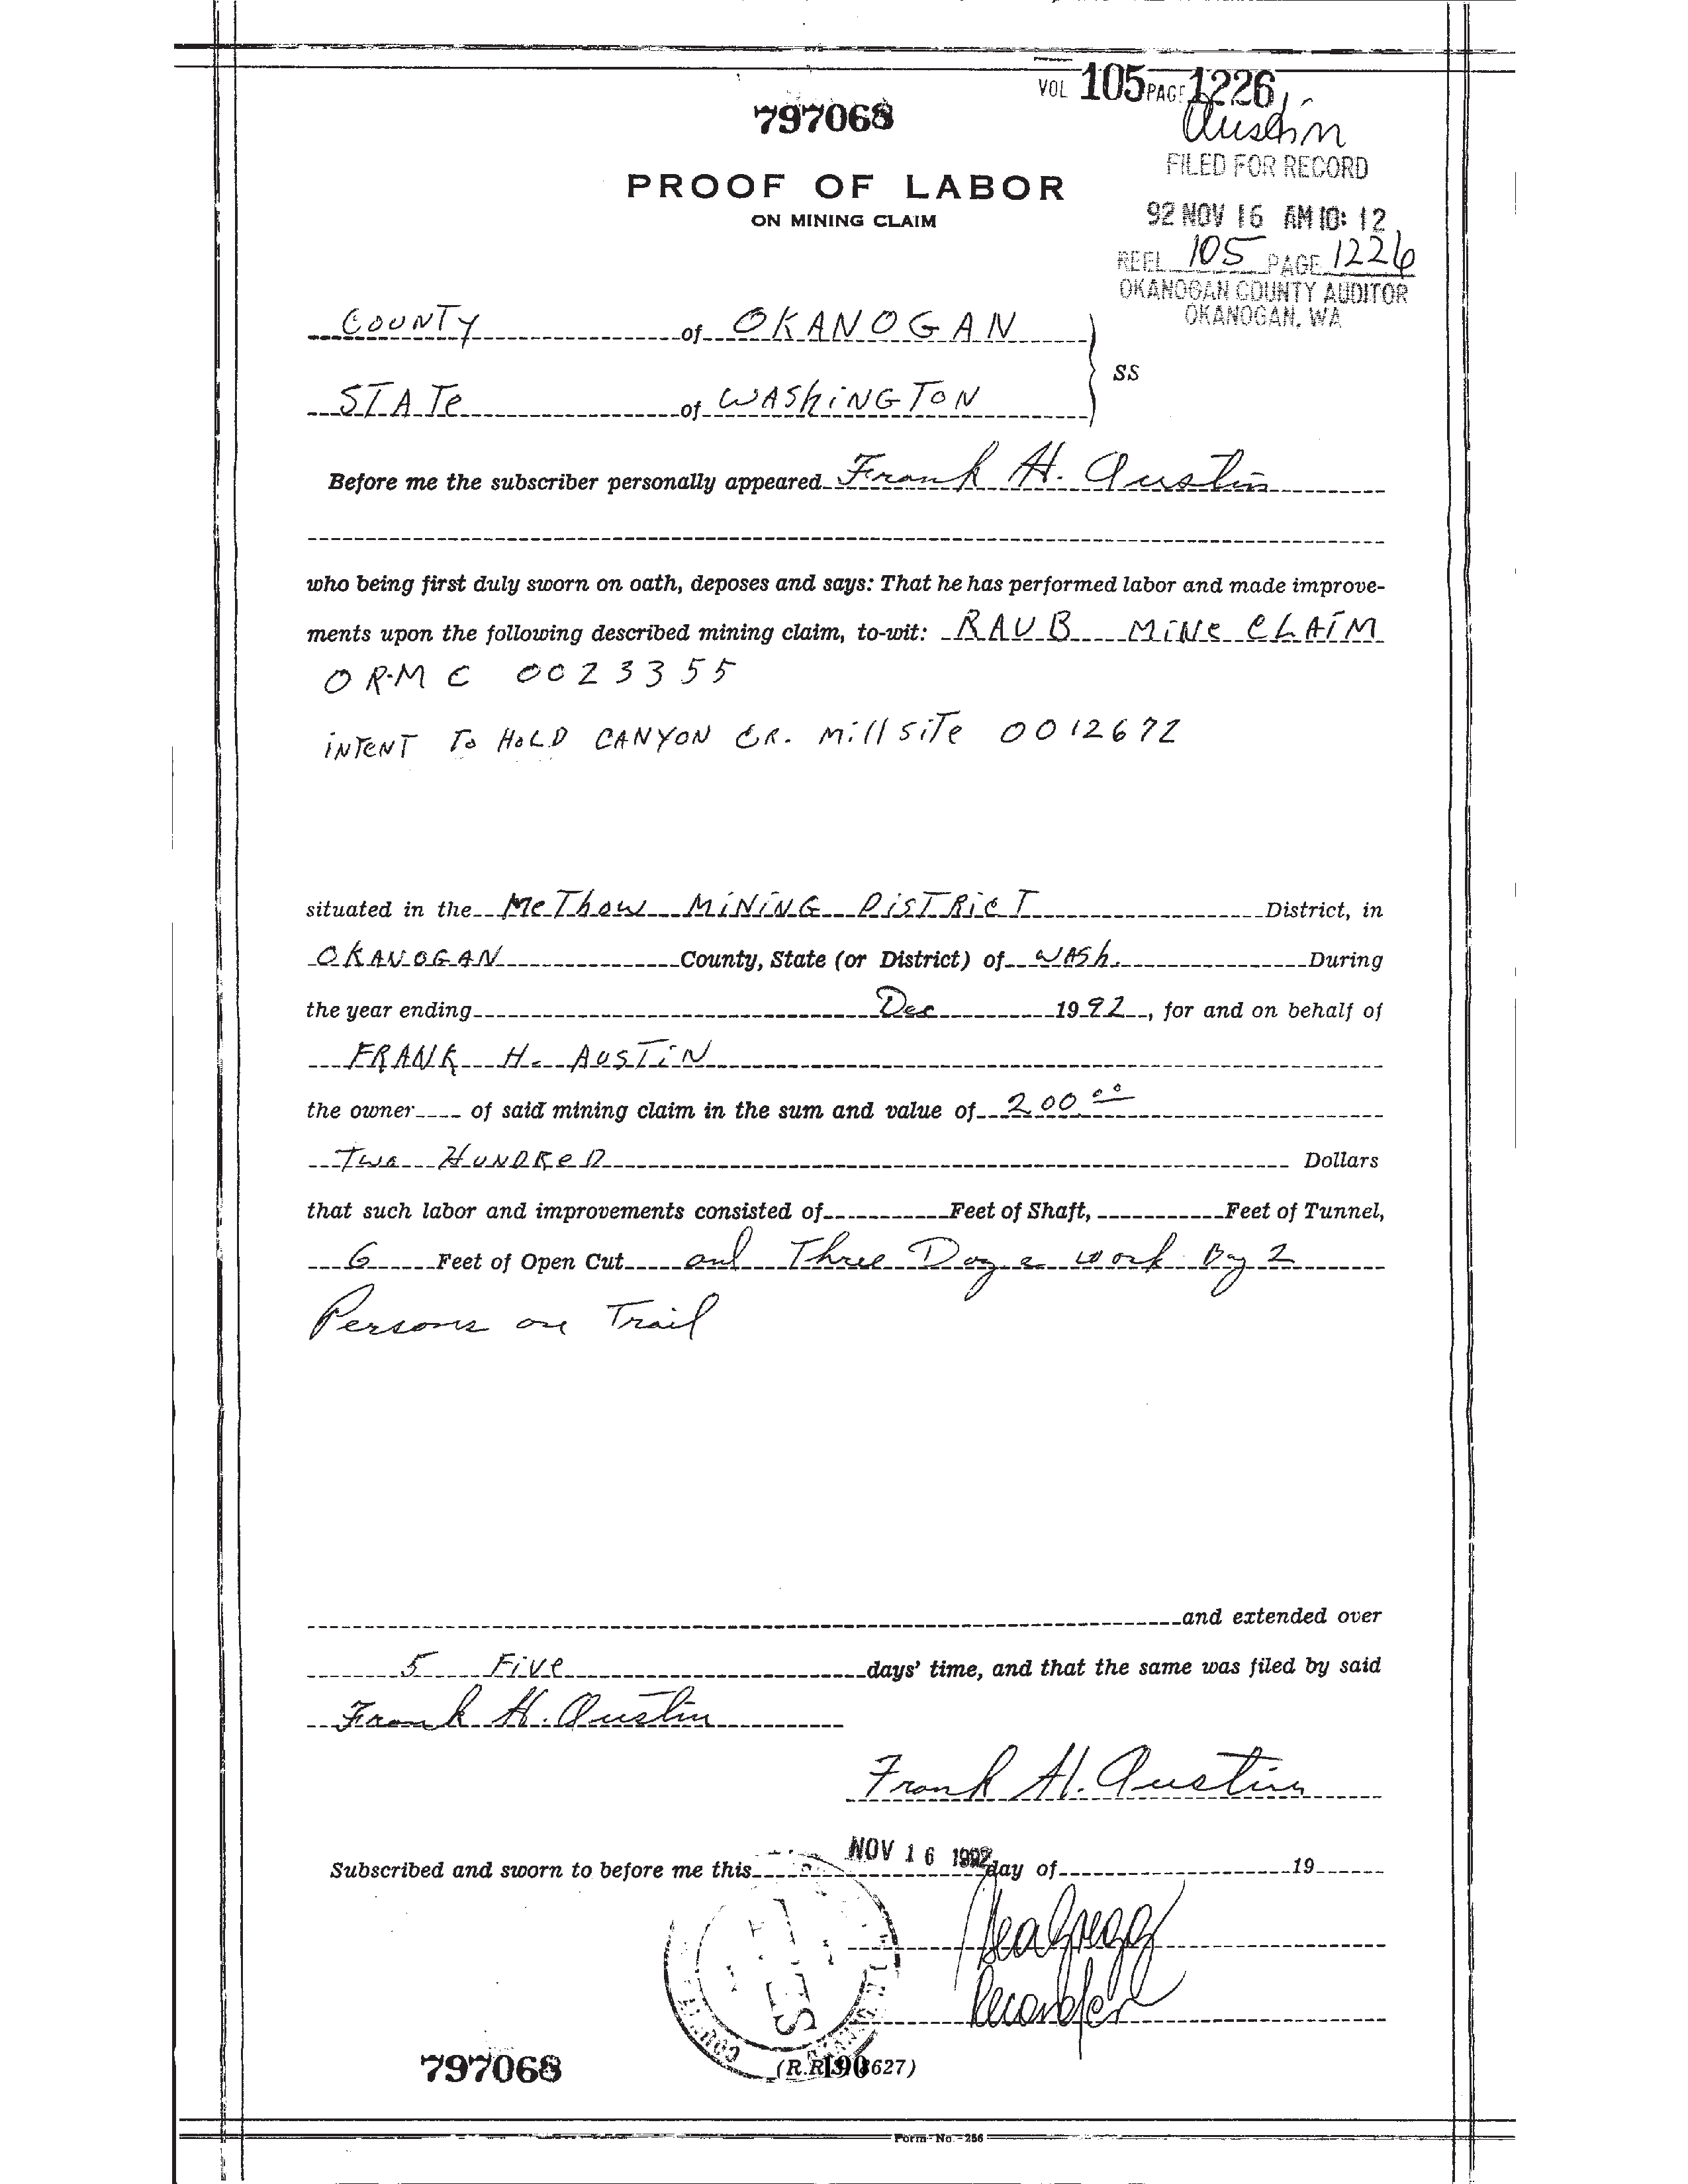 VOL 105 PAGE 1226
797068
Austin
FILED FOR RECORD
PROOF OF LABOR
ON MINING CLAIM
92 NOV 16 AM 10: 12
REEL 105 PAGE 1226
OKANOGAN COUNTY AUDITOR
OKANOGAN, WA
COUNTY of OKANOGAN
SS
STATe of WAShiNGTON
Before me the subscriber personally appeared Frank H. Austin
who being first duly sworn on oath, deposes and says: That he has performed labor and made improve-
ments upon the following described mining claim, to-wit: RAUB MiNe CLAiM
ORMC 0023355
iNTeNT To HoLD CANYON CR. Mill SiTe 0012672
situated in the MeThow MiNiNG DiSTRicT District, in
OKANOGAN County, State (or District) of WASh. During
the year ending Dec 1992, for and on behalf of
FRANK H. AUSTiN
the owner of said mining claim in the sum and value of 200 00
Two HUNDReD Dollars
that such labor and improvements consisted of Feet of Shaft, Feet of Tunnel,
6 Feet of Open Cut and Three Days work By 2
Persons on Trail
and extended over
5 Five days' time, and that the same was filed by said
Frank H. Austin
Frank H. Austin
Subscribed and sworn to before me this NOV 16 1992 day of 19
Recorder
797068
Form No. 256